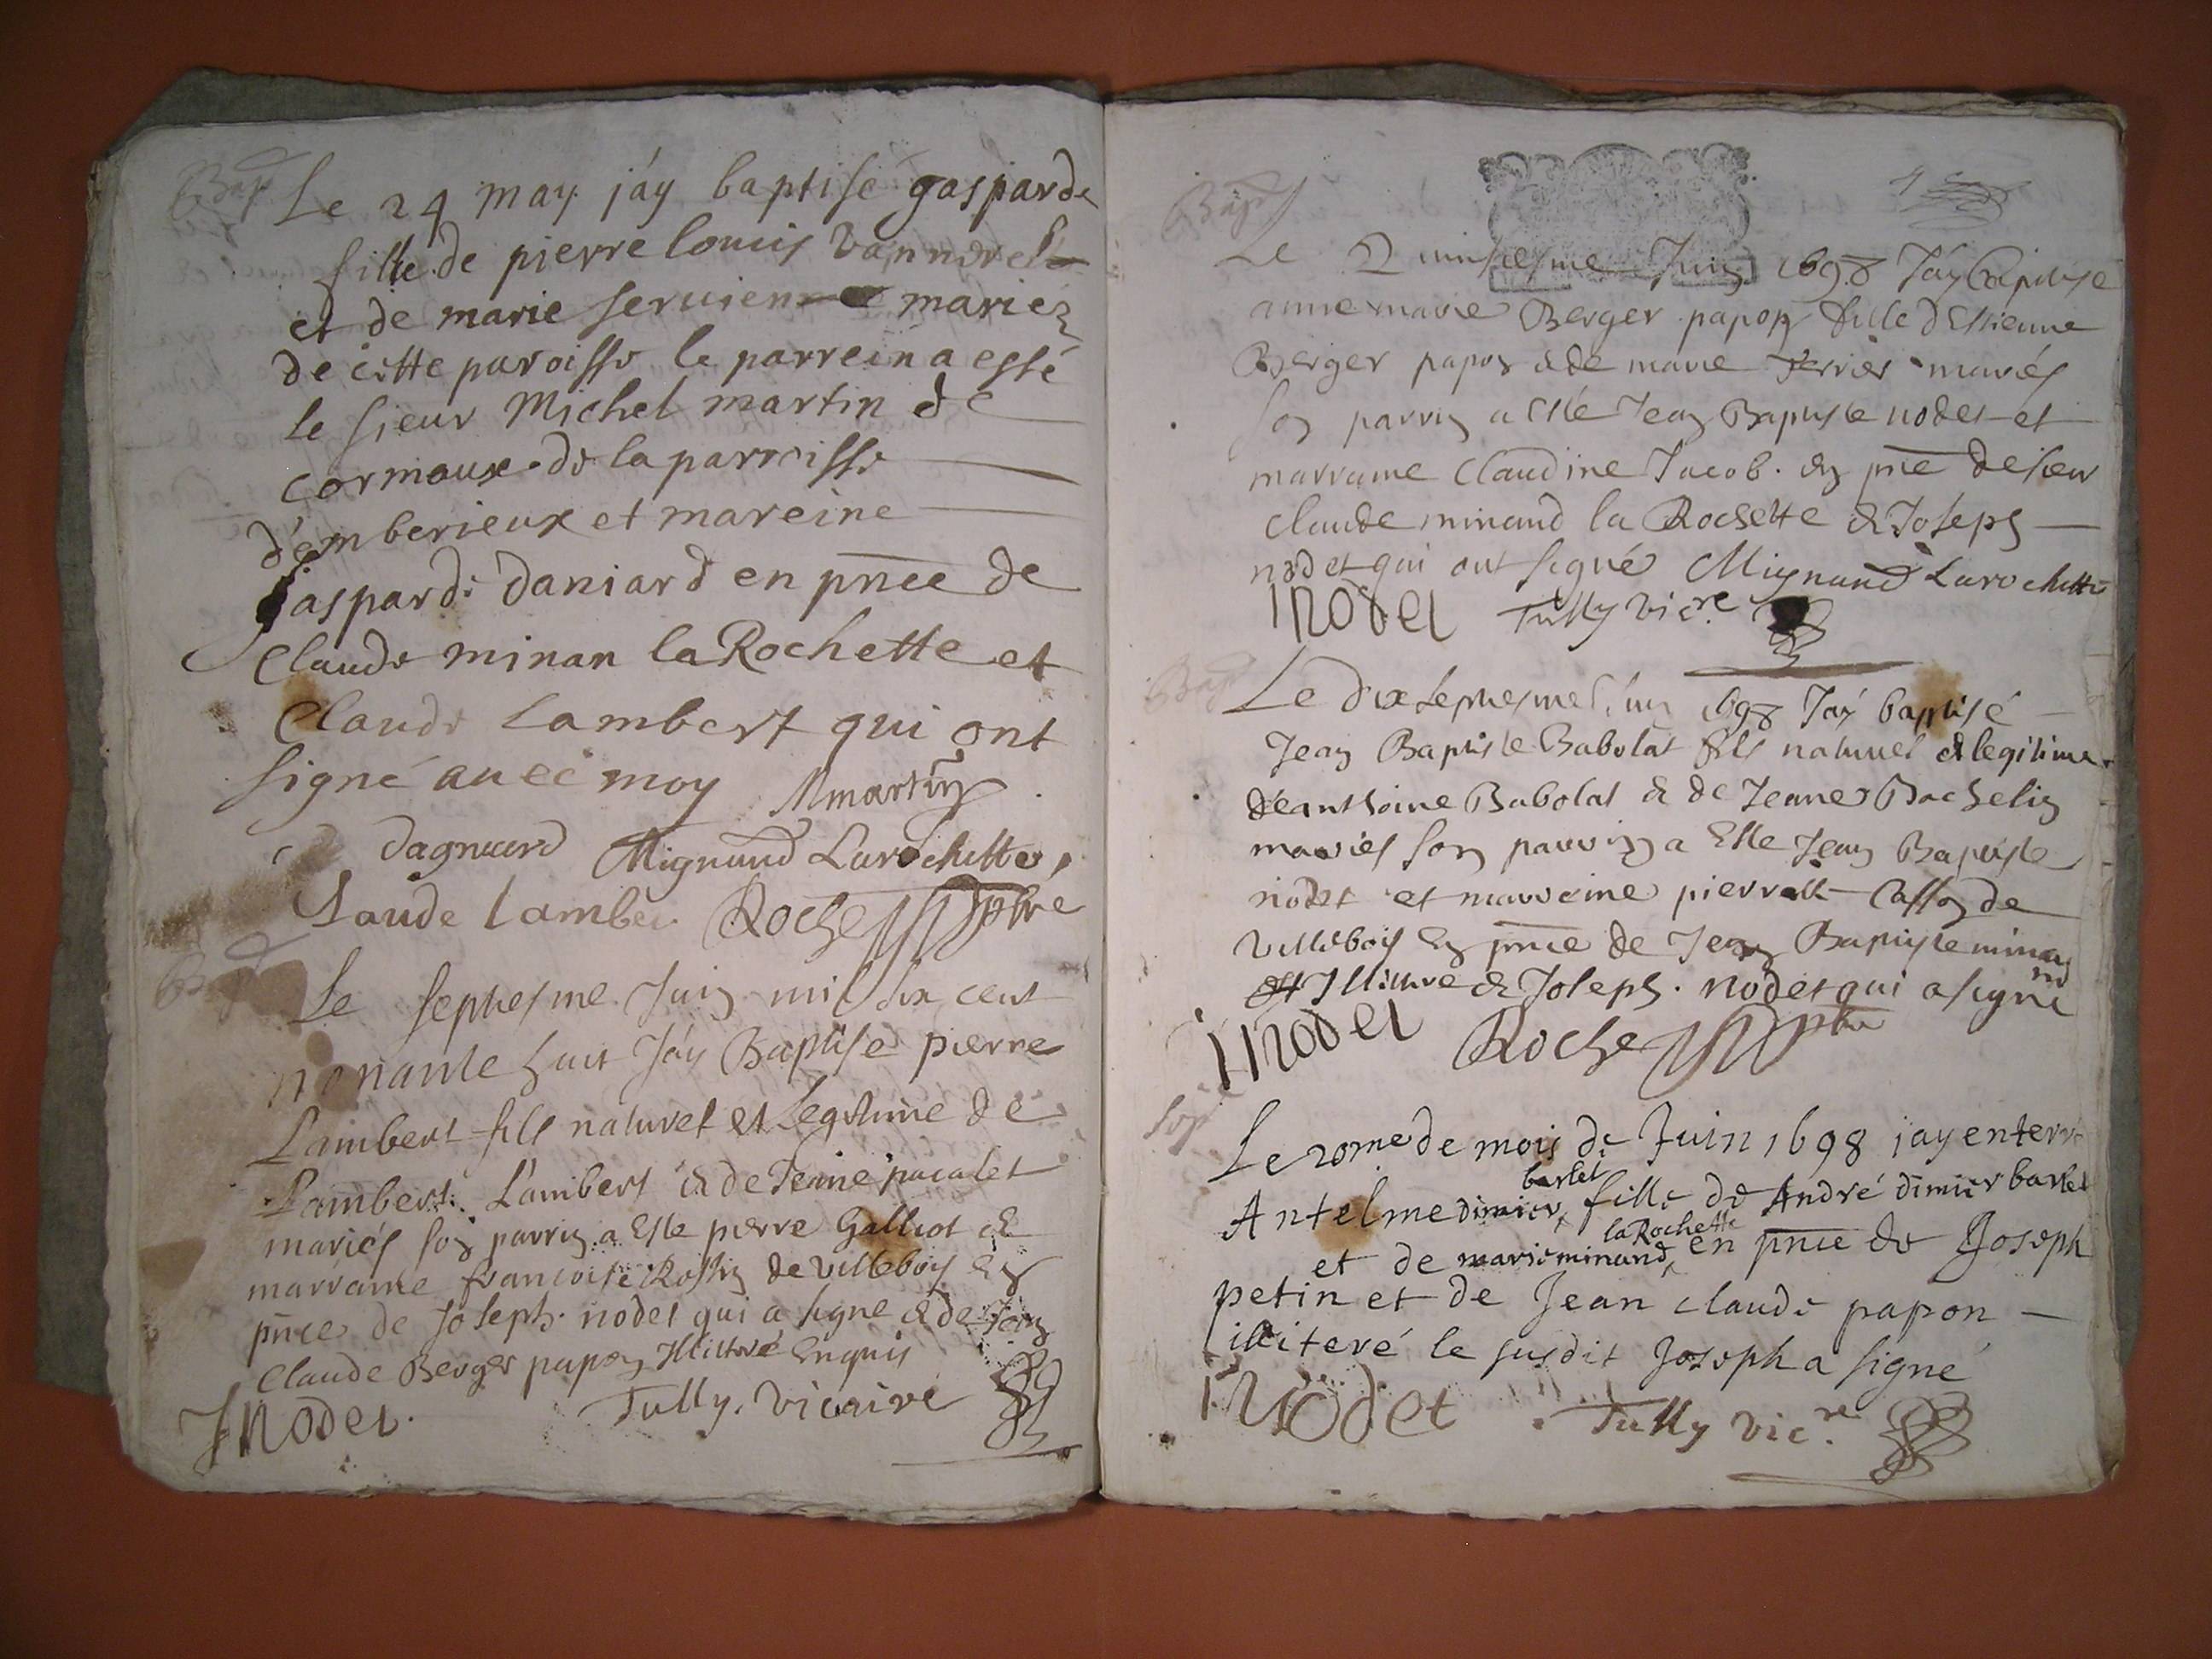 Bap
Le 24 may jáy baptisé gasparde
fille de pierre louis
et de marie seruien mariéz
de cette paroisse le parrein a essé
le sieur Michel martin de
cormoux de la parroisse
d'emberieux et mareine
gasparde daniard en pnce de
Claude minan la Rochette et
Claude Lambert qui ont
signé auec moy Mmartin
dagniard Mignand Larochette
Claude lamber Roche pbre
Bap
Le septiesme Juin mil six cent
nonante huit Jáy Baptisé pierre
Lambert fils naturel et Legitime de
Lambert Lambert & de Jeane pacalet
mariés son parrin a Esté pierre Galliot &
marraine francoise Rostin de villeboy En
pnce de Joseph nodet qui a signé & de Jean
Claude Berger papon Illitéré Enquis
J Nodet Tully. vicaire
Bap
Le Quinsiesme Juin 1698 Jáy Baptisé
anne marie Berger papon fille d'Estienne
Berger papon & de marie mariés
son parrin a Esté Jean Baptiste nodet et
marraine Claudine Jacob. En pnce de sieur
Claude minand la Rochette & Joseph
nodet qui ont signé Mignand Larochette
J nodet Tully vicre
Bap
Le dix septiesme Juin 1698 Jáy baptisé
Jean Baptiste Babolat fils naturel & legitime
de anthoine Babolat & de Jeane Bachelin
mariés son parrin a Esté Jean Baptiste
nodet et marreine pierrette Casson de
villeboy En pnce de Jean Baptiste minand
Illittéré & Joseph. nodet qui a signé
J nodet Roche pbre
Sep
Le 20me de mois de Juin 1698 jay enterré
Antelme dimier barlet fille de André dimier barlet
et de marie minand la Rochette en pnce de Joseph
petin et de Jean claude papon
iliteré le susdit Joseph a signé
J Nodet Tully vic.re